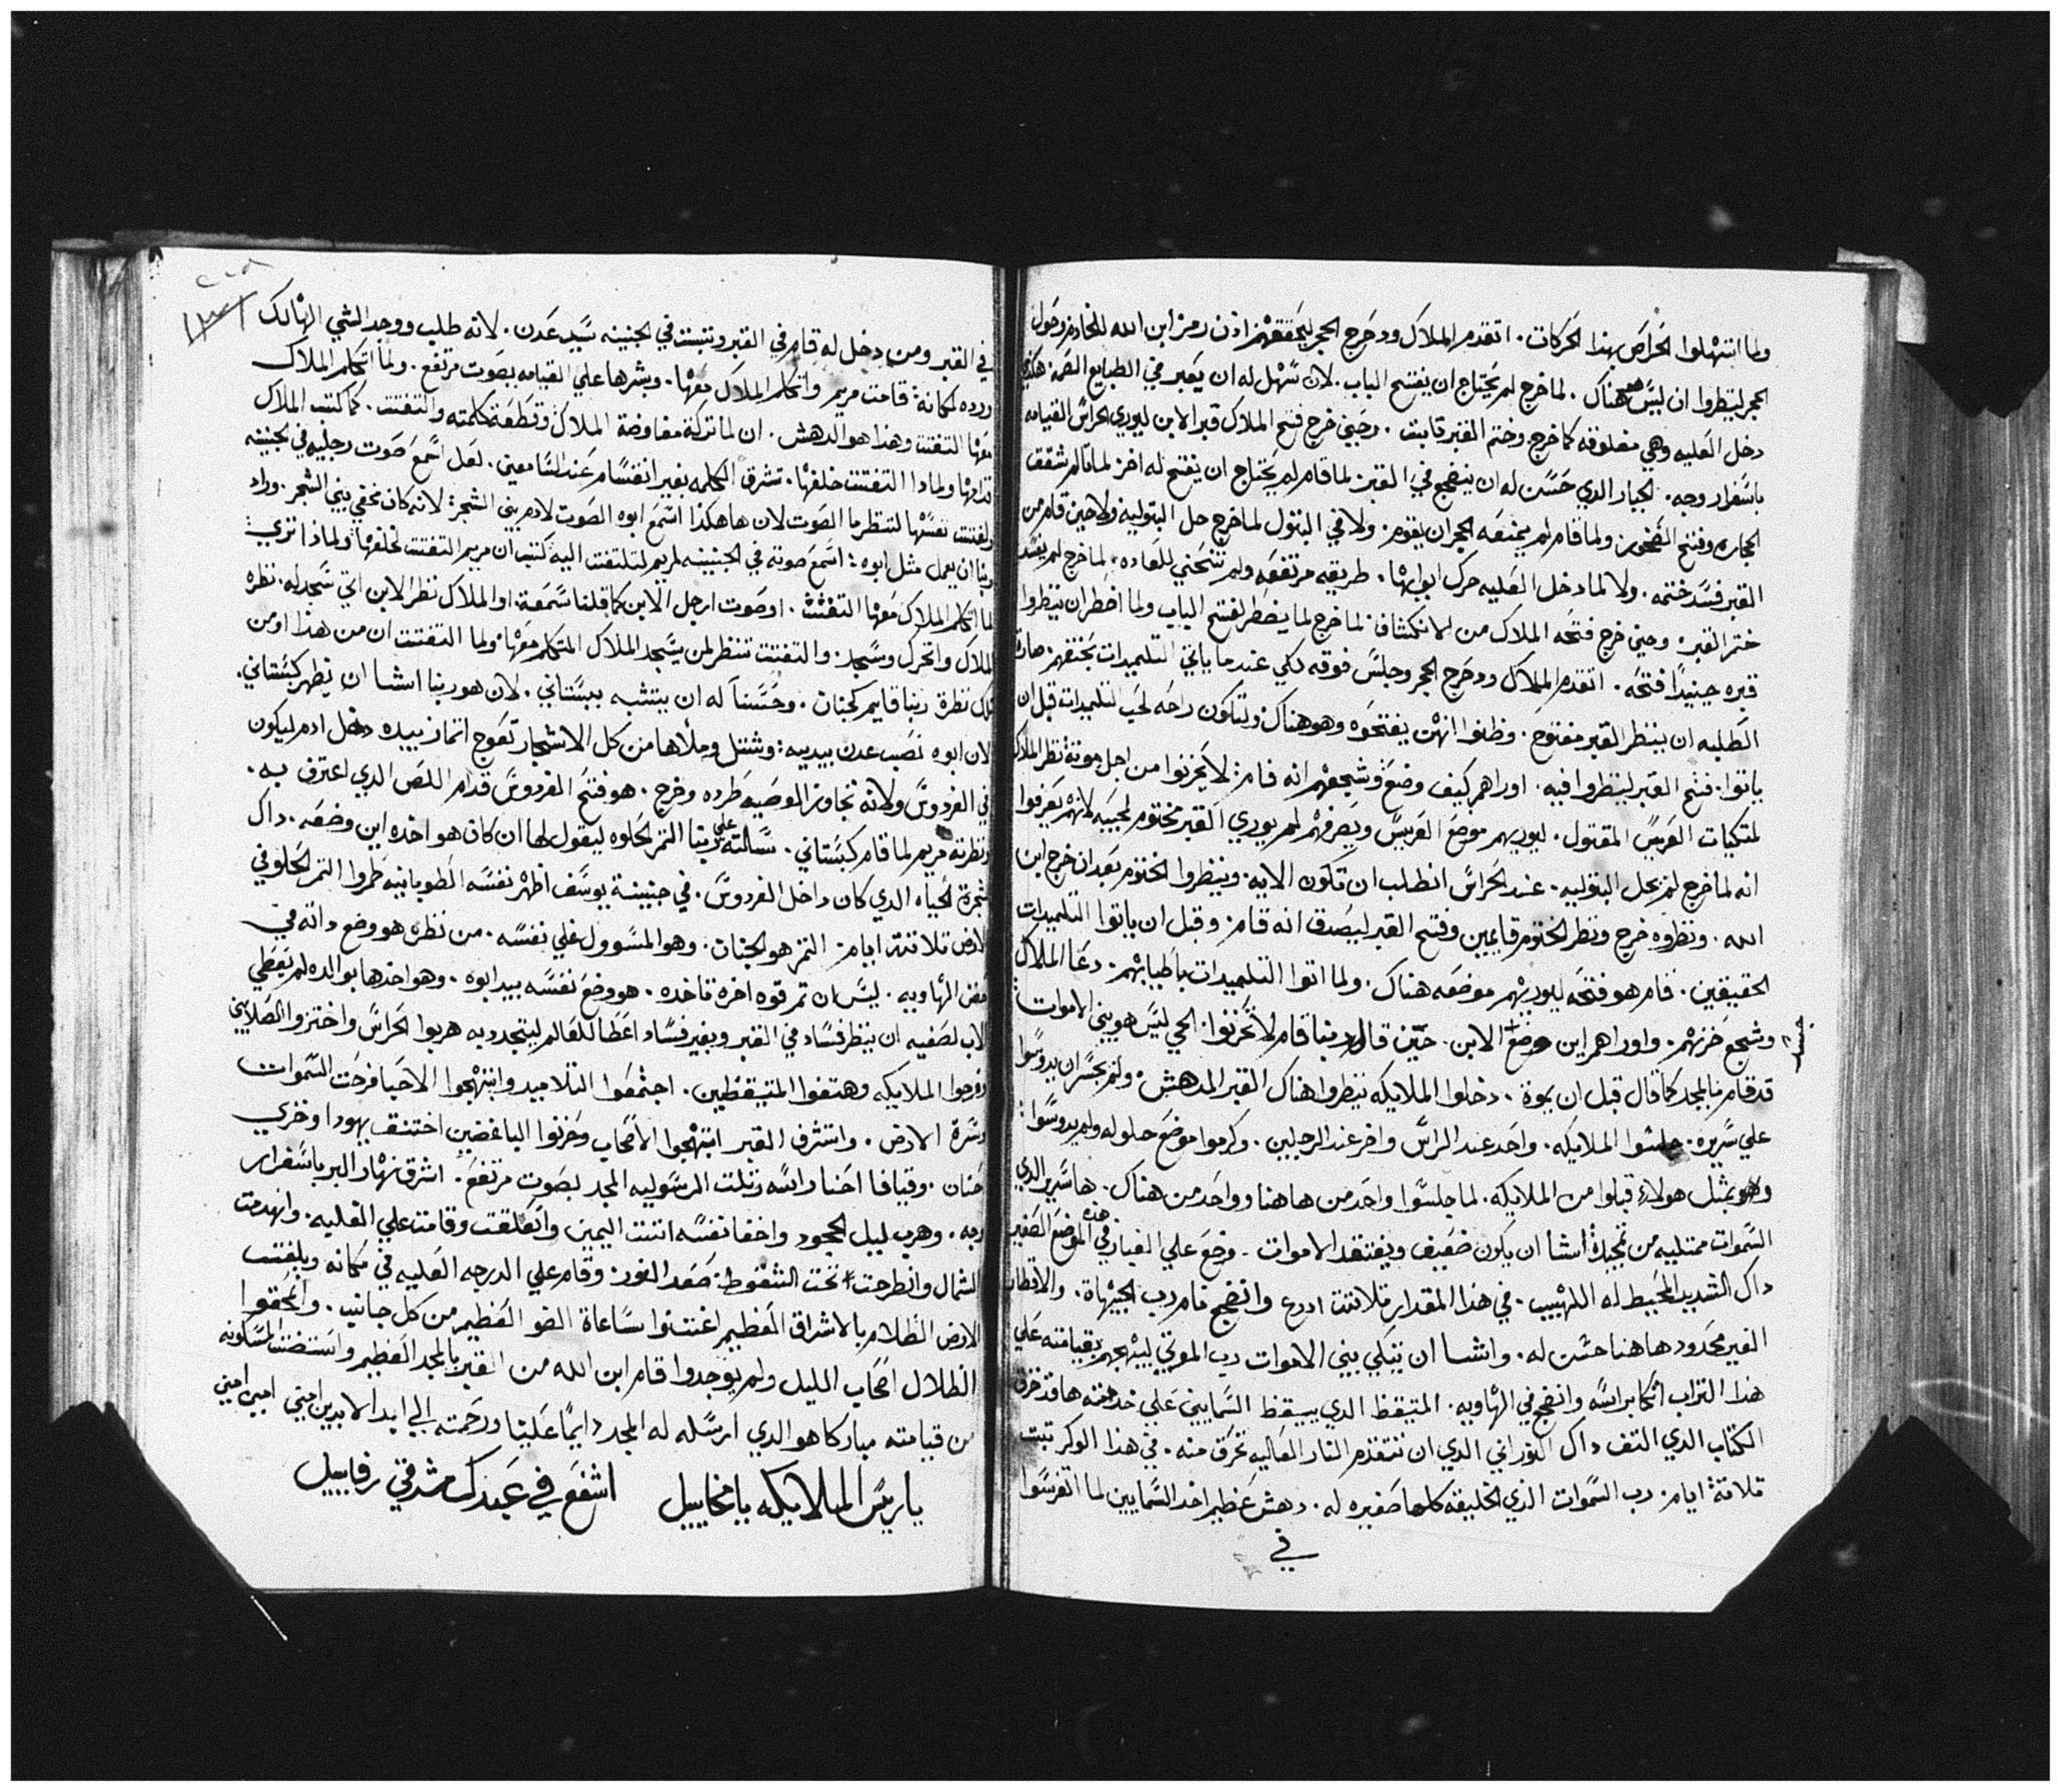 ولما انتهلوا الحراص بهذا الحركات. اتقدم الملاك ودحرج الحجر ليحققهم اذن رمز ابن الله للخادم وحول
الحجر لينظروا ان ليس هو هناك. لما خرج لم يحتاج ان يفتح الباب. لان سهل له ان يعبر في الطبايع الصمه هكذا
دخل العليه وهي مغلوقه كما خرج وختم القبر ثابت. وحيني خرج فتح الملاك قبر الابن ليوري الحراس القيامه
باسفرار وجه. الجبار الدي حسن له ان ينضجع في القبر لما قام لم يحتاج ان يفتح له اخر لما تالم شقق
الحجاره وفتح الصخور ولما قام لم يمنعه الحجر ان يقوم. ولا في البتول لما خرج حل البتوليه ولا حين قام من
القبر فسد ختمه. ولا لما دخل العليه حرك ابوابها. طريقه مرتفعه ولم تنحني للعاده. لما خرج لم يفسد
ختم القبر وحيني خرج فتحه الملاك من الانكشاف لما خرج لما يضطر لفتح الباب ولما اضطر ان ينظروا
قبره حينيدا فتحه. اتقدم الملاك ودحرج الحجر وجلس فوقه لكي عندما ياتي التلميدات يحققهم صارة
الطلبه ان ينظر القبر مفتوح. وظنوا انهن يفتحوه وهو هناك ولتكون راحه لحب التلميدات قبل ان
ياتوا. فتح القبر لينظروا فيه. اوراهم كيف وضع وشجعهم انه قام: لا يحزنوا من اجل موته نظر الملاك
لمتكيات العريس المقتول. ليوريهم موضع العريس ويصرفهم لم يوري القبر مختوم لمحبيه لانهم يعرفوا
انه لما خرج لم يحل البتوليه. عند الحراس انطلب ان تكون الايه. وينظروا الختوم بعد ان خرج ابن
الله. ونظروه خرج ونظر الختوم قايمين وفتح القبر ليصدق انه قام: وقبل ان ياتوا التلميدات
الحقيقين. قام هو فتحه ليوريهم موضعه هناك. ولما اتوا التلميدات باطيابهم. دعا الملاك
وشجع حزنهم. واوراهم اين وضع الابن. حين قال ربنا قام لا تحزنوا. الحي ليس هو بيني الاموات
قد قام بالمجد كما قال قبل ان يموة. دخلوا الملايكه ينظروا هناك القبر المدهش. ولم يجسر ان يدوسوا
علي سريره. جلسوا الملايكه. واحد عند الراس واخر عند الرجلين. وكرموا موضع حلوله ولم يدوسوا:
وهو بمثل هولاء قبلوا من الملايكه. لما جلسوا واحد من هاهنا وواحد من هناك. ها سرير الدي
السموات ممتليه من تمجيدة اشا ان يكون ضعيف ويفتقد الاموات. وضع علي الغبار في هذه الموضع الصغير
داك الشديد المحيط له اللهيب. في هذا المقدار تلاتت ادرع وانضجع قام رب الجيهاة. والاقطار
الغير محدود هاهنا حسن له. واشا ان يتكي بيني الاموات رب الموتي ليبهجهم بقيامته علي
هذا التراب اتكا براسه وانضجع في الهاويه. المتيقظ الدي ييقظ السمايين علي خد
الكتاب الدي التف داك النوراني الدي ان تتقدم النار العاليه تحرق منه. في هذا الوكر تبت
تلاتة ايام: رب السموات الدي الخليقه كلها صغيره له. دهش عظيم اخد السمايين لما اتفرسوا
في
في القبر ومن دخل له قام في القبر وتبتت في الجنينه سيد عدن. لانه طلب ووجد الشي الهالك
ورده لمكانه: قامت مريم واتكلم الملاك معها. وبشرها علي القيامه بصوت مرتفع. ولما اتكلم الملاك
معها التفتت وهذا هو الدهش. ان لما تركة مفاوضة الملاك وقطعة كلمته والتفتت. كما كتب الملاك
قدامها ولمادا التفتت خلفها. تشرق الكلمه بغير انقسام عند السامعين. لعل اسمع صوت رجليه في الجنينه
ولفتت نفسها لتنظر ما الصوت لان هاهكذا اسمع ابوه الصوت لادم بيني الشجر: لانه كان مخفي بيني الشجر. وراد
ربنا ان يعمل مثل ابوه: اسمع صوته في الجنينه لمريم لتلتفت اليه كتب ان مريم التفتت لخلفها ولماذا نري
لما اتكلم الملاك معها التفتت. او صوت ارجل الابن كما قلنا سمعة. او الملاك نظر الابن اتي سجد له. نظره
الملاك واتحرك وسجد. والتفتت تنظر لمن يسجد الملاك المتكلم معها: ولما التفتت ان من هذا او من
داك نظرة ربنا قايم كجنان. وحسناً له ان يتشبه ببستاني. لان هو ربنا اشا ان يظهر كبستاني.
لان ابوه نصب عدن بيديه: وشتل وملاها من كل الاشجار تعوج اتمار بيده دخل ادم ليكون
في الفردوس ولانه تجاوز الوصيه طرده وخرج. هو فتح الفردوس قدام اللص الدي اعترف به.
ونظرته مريم لما قام كبستاني. سالته علي ربنا التمر الحلوه ليقول لها ان كان هو اخده اين وضعه. داك
شجرة الحياه الدي كان داخل الفردوس. في جنينة يوسف اظهر نفسه الطوبانيه طمروا التمر الحلو في
الارض تلاتة ايام: التمر هو الجنان. وهو المسوول علي نفسه. من نظره هو وضع داته في
عمق الهاويه. ليس ان تم قوه اخره تاخده. هو وضع نفسه بيد ابوه. وهو اخدها بوالده لم يعطي
الاب لصفيه ان ينظر فساد في القبر وبغير فساد اعطا للعالم ليتجدد به هربوا الحراس واختزوا الصلابي
وفرحوا الملايكه وهتفوا المتيقظين. اجتمعوا التلاميد وابتهجوا الاحيا فرحت السموات
وسرة الارض. واتشرف القبر ابتهجوا الاصحاب وحزنوا الباغضين اختنق يهودا وخزي
حنان. وقيافا احنا راسه رتلت الرسوليه المجد بصوت مرتفع. اشرق نهار البر باسفرار
وجه. وهرب ليل الجحود واخفا نفسه اتبتت اليمين واتعلقت وقامت علي العليه. وانهدمت
الشمال وانطرحت تحت السقوط: صعد النور: وقام علي الدرجه العليه في مكانه وبلغتت
الارض الظلام بالاشراق العظيم اغتنوا ساعاة الضو العظيم من كل جانب. وانمحقوا
الظلال اصحاب الليل ولم يوجدوا قام ابن الله من القبر بالمجد العظيم واستضت المسكونه
من قيامته مباركا هو الدي ارسله له المجد دايماً علينا ورحمته الي ابد الابدين امين امين امين
يا ريس الملايكه يا مخاييل اشفع في عبدك مشرقي رفاييل